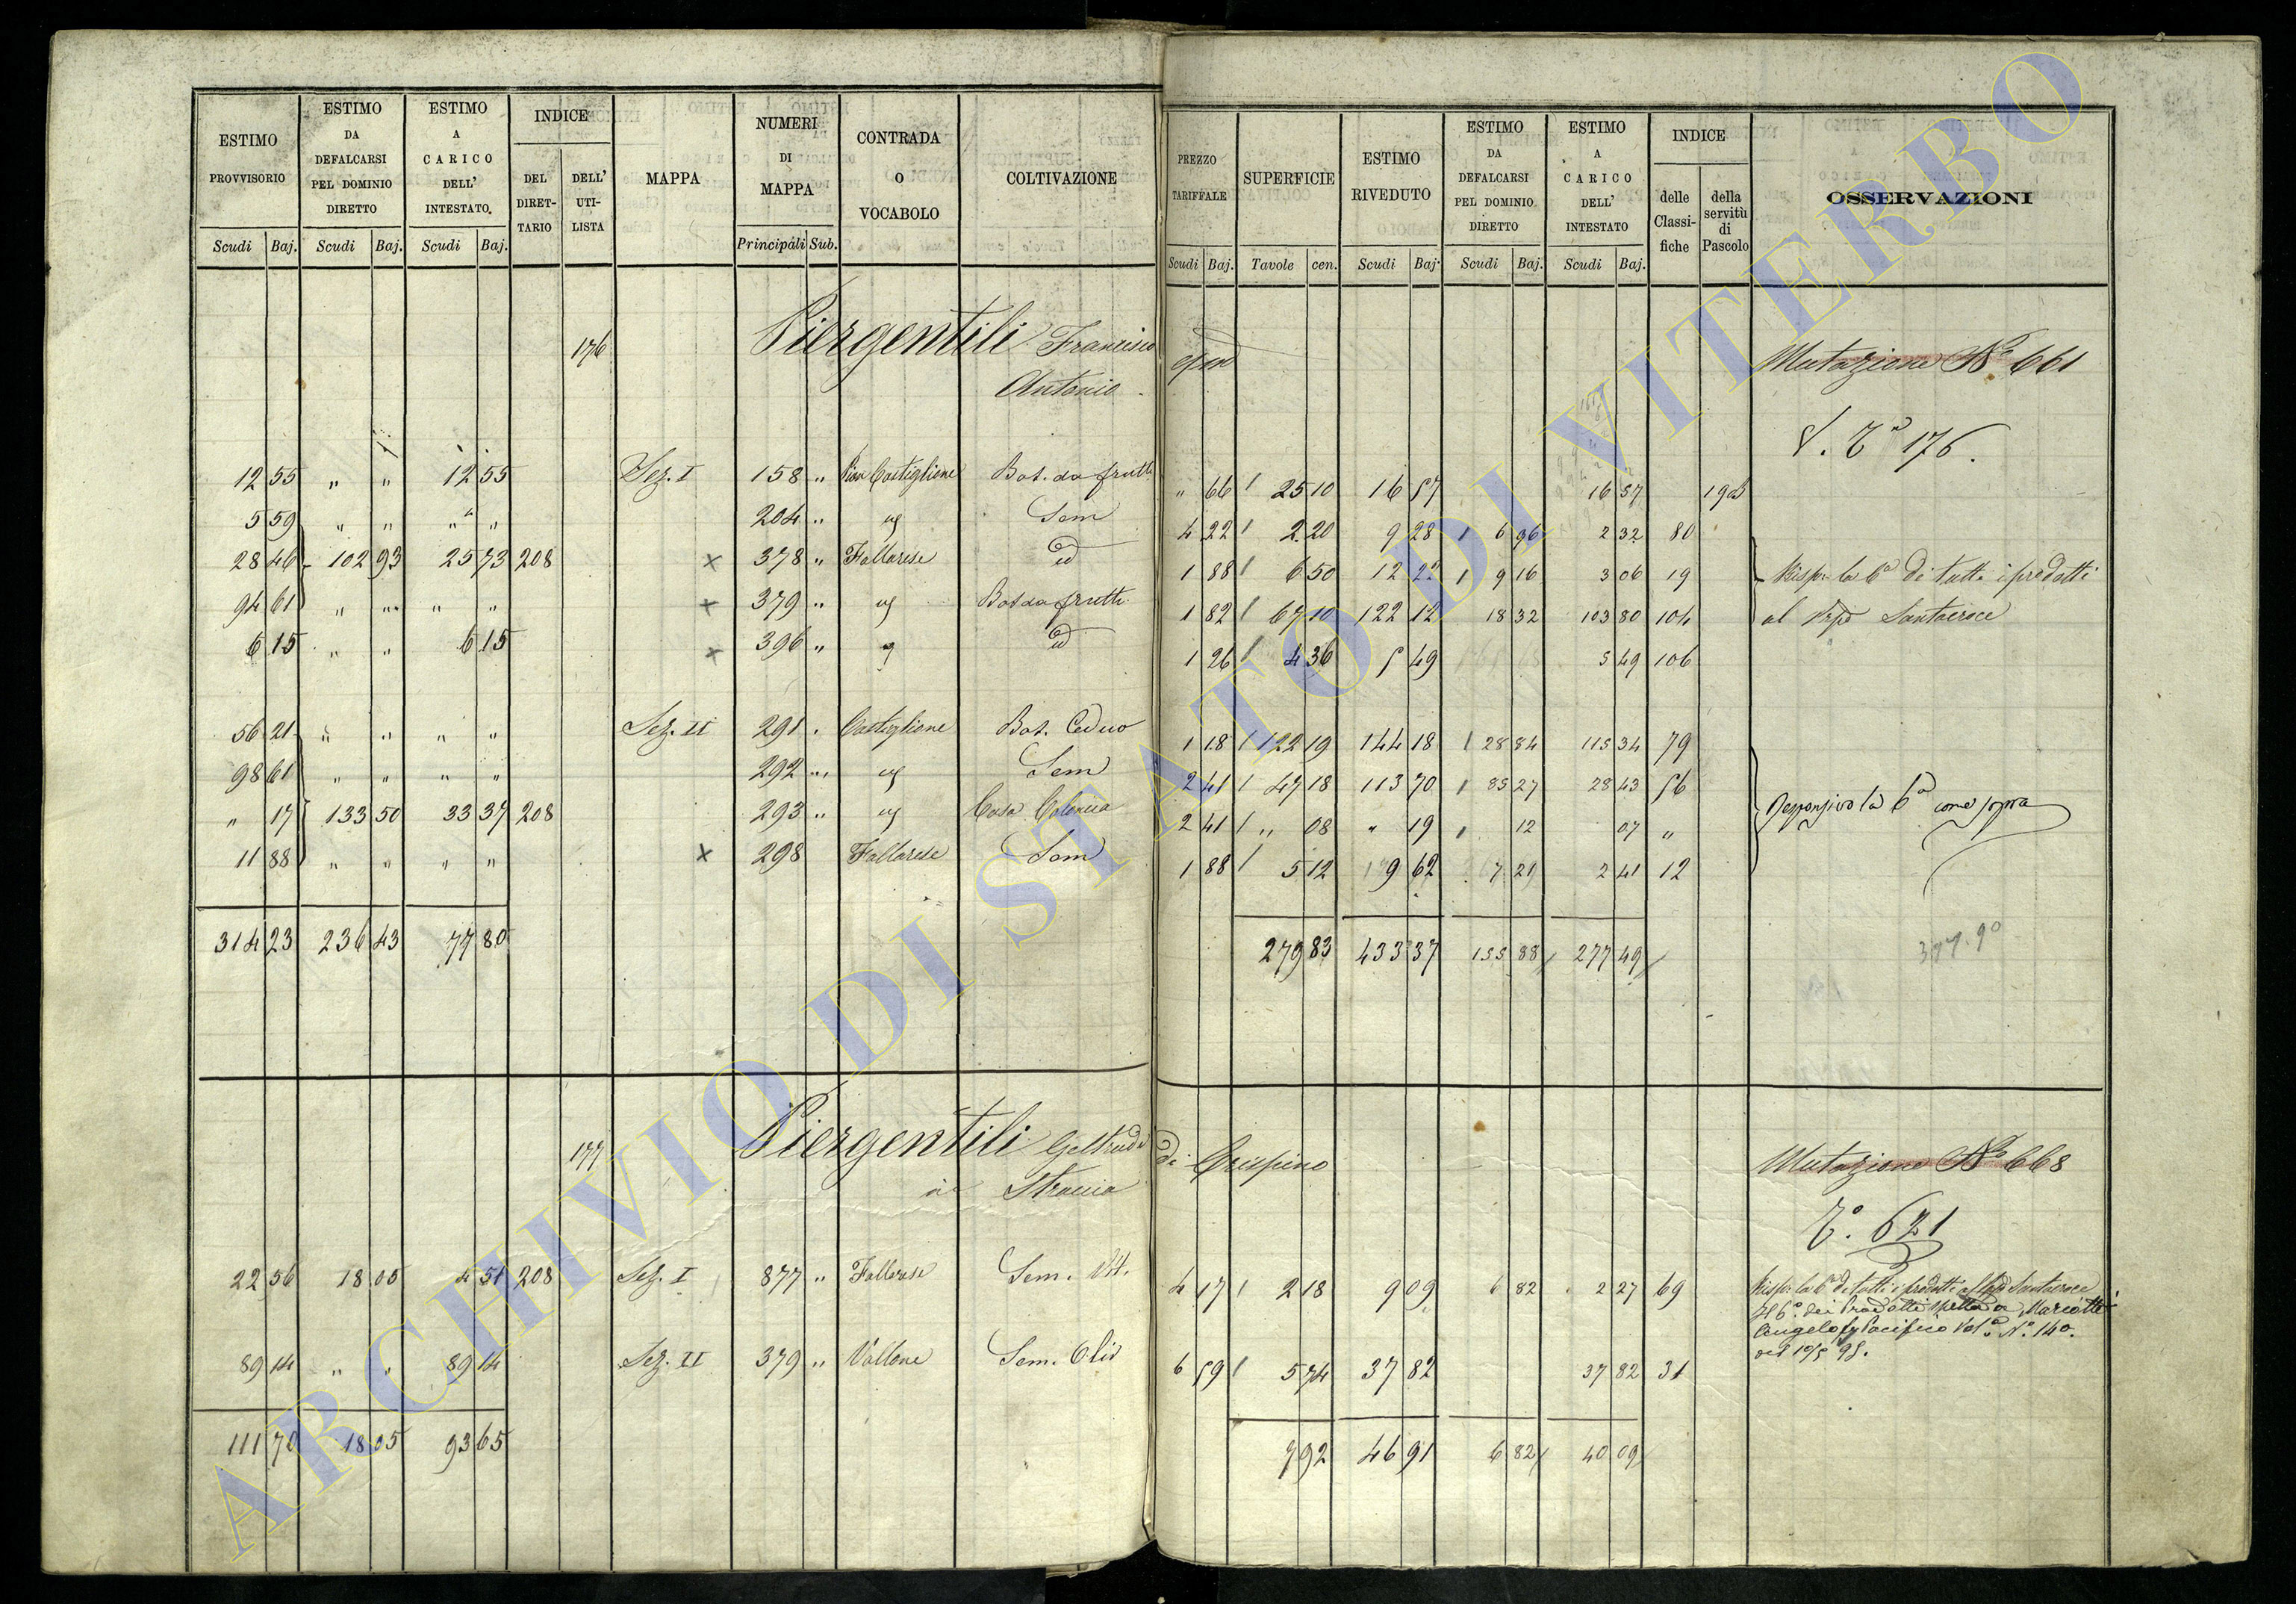 ESTIMO PROVVISORIO Scudi Baj.
ESTIMO DA DEFALCARSI PEL DOMINIO DIRETTO Scudi Baj.
ESTIMO A CARICO DELL' INTESTATO. Scudi Baj.
INDICE DEL DIRETTARIO DELL' UTILISTA
MAPPA
NUMERI DI MAPPA Principali Sub.
CONTRADA O VOCABOLO
COLTIVAZIONE
176 Piergentili Francesco
Antonio
12 55 " " 12 55 Sez. I 158 " Pian Castiglione Bos. da frutt.
5 59 " " " " 204 " Sem
28 46 102 93 25 73 208 × 378 " Fallarese id
94 61 " " " " × 379 " Bos da frutti
6 15 " " 6 15 × 396 " id
56 21 " " " " Sez. II 291 " Castiglione Bos. Ceduo
98 61 " " " " 292 " Sem
" 17 133 50 33 37 208 293 " Casa Colonica
11 88 " " " " × 298 Fallarese Sem
314 23 236 43 77 80
177 Piergentili Geltrude
in Straccia
22 56 18 05 4 51 208 Sez. I 877 " Fallarese Sem. Vit.
89 14 " " 89 14 Sez. II 379 " Vallone Sem. Oliv
111 70 18 05 93 65
PREZZO TARIFFALE Scudi Baj.
SUPERFICIE Tavole cen.
ESTIMO RIVEDUTO Scudi Baj.
ESTIMO DA DEFALCARSI PEL DOMINIO DIRETTO Scudi Baj.
ESTIMO A CARICO DELL' INTESTATO Scudi Baj.
INDICE delle Classifiche della servitù di Pascolo
OSSERVAZIONI
Mutazione No. 661
176.
" 66 25 10 16 57 16 57
4 22 2 20 9 28 6 96 2 32 80
1 88 6 50 12 22 9 16 3 06 19 Risp. la 6a di tutti i prodotti
1 82 67 10 122 12 18 32 103 80 104 al Santacroce
1 26 4 36 5 49 5 49 106
1 18 122 19 144 18 28 84 115 34 79
2 41 47 18 113 70 85 27 28 43 56
2 41 " 08 " 19 12 07 " Responsivo la 6a come sopra
1 88 5 12 9 62 7 21 2 41 12
279 83 433 37 155 88 277 49
di Crispino Mutazione No 668
621
4 17 2 18 9 09 6 82 2 27 69 Risp. la 6a di tutti i prodotti al Santacroce
Il 6o. dei Prodotti spetta a Mariotti
Angelo fu Pacifico Vola No. 140.
6 59 5 74 37 82 37 82 31
7 92 46 91 6 82 40 09
ARCHIVIO DI STATO DI VITERBO